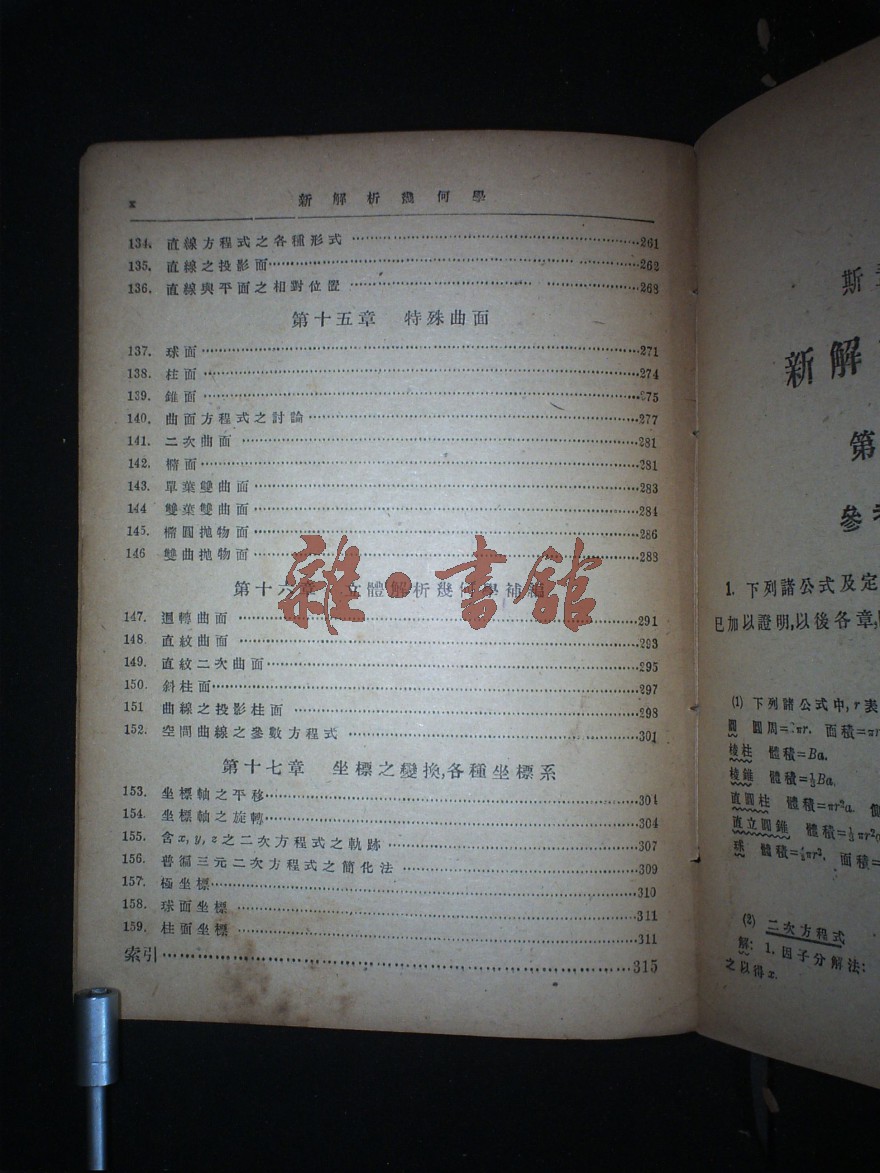 x 新解析幾何學
134. 直線方程式之各種形式 261
135. 直線之投影面 262
136. 直線與平面之相對位置 268
第十五章 特殊曲面
137. 球面 271
138. 柱面 274
139. 錐面 275
140. 曲面方程式之討論 277
141. 二次曲面 281
142. 橢面 281
143. 單葉雙曲面 283
144 雙葉雙曲面 284
145. 橢圓拋物面 286
146 雙曲拋物面 288
第十六章 立體解析幾何學補編
147. 迴轉曲面 291
148. 直紋曲面 293
149. 直紋二次曲面 295
150. 斜柱面 297
151 曲線之投影柱面 298
152. 空間曲線之參數方程式 301
第十七章 坐標之變換,各種坐標系
153. 坐標軸之平移 304
154. 坐標軸之旋轉 304
155. 含x, y, z之二次方程式之軌跡 307
156. 普徧三元二次方程式之簡化法 309
157. 極坐標 310
158. 球面坐標 311
159. 柱面坐標 311
索引 315
雜·書館
斯
新解
第
參考
1. 下列諸公式及定
已加以證明,以後各章,
(1) 下列諸公式中, r表
圓 圓周=2πr. 面積=πr
棱柱 體積=Ba.
棱錐 體積=⅓Ba.
直圓柱 體積=πr²a.
直立圓錐 體積=⅓πr²a
球 體積=πr³. 面積=
(2) 二次方程式
解: 1. 因子分解法:
之以得x.